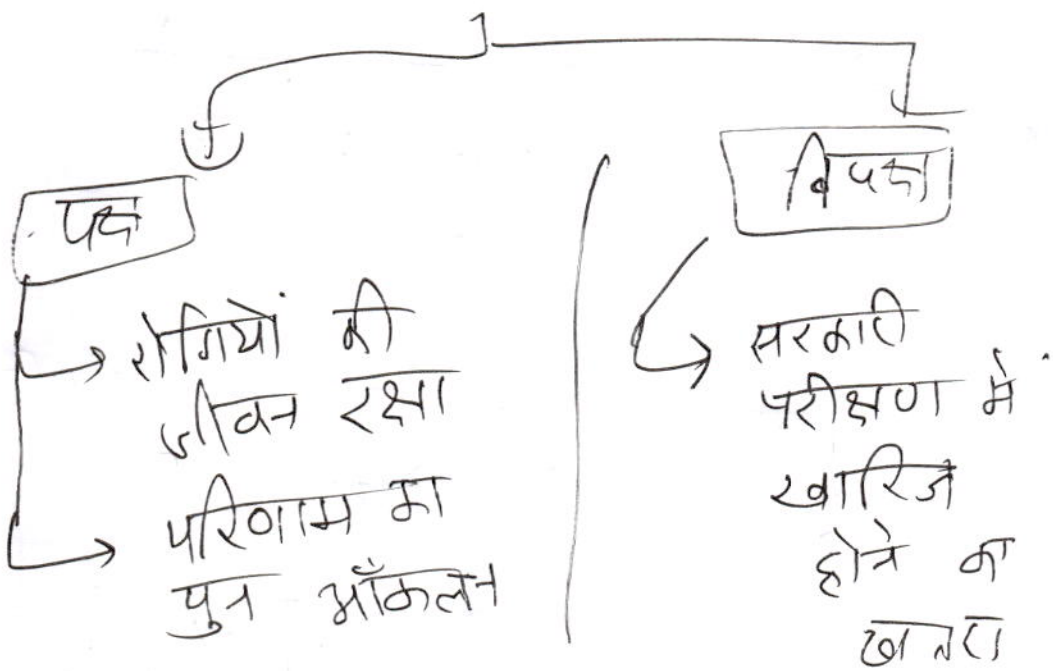 पक्ष
रोगियों की
जीवन रक्षा
परिणाम का
पुन आँकलन
विपक्ष
सरकारी
परीक्षण में
खारिज
होने का
खतरा